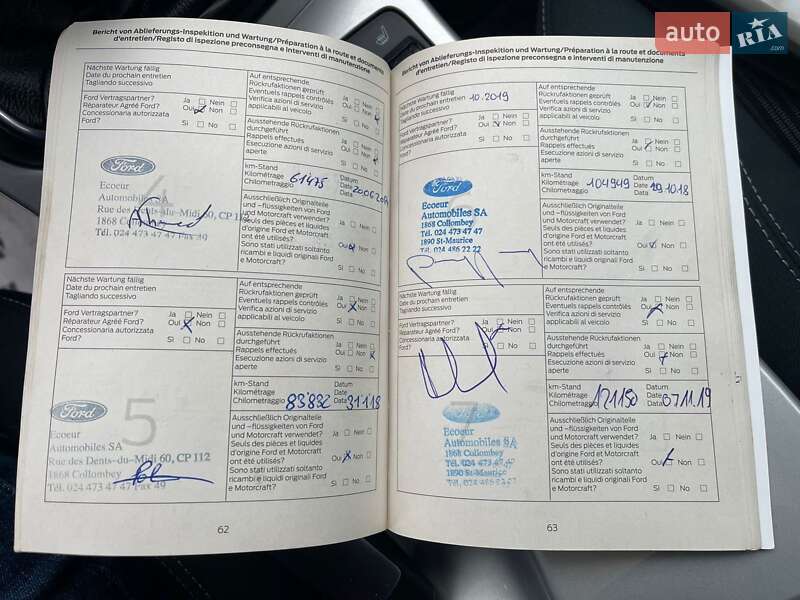 auto RIA .com
Bericht von Ablieferungs-Inspektion und Wartung/Préparation à la route et documents
d'entretien/Registo di ispezione preconsegna e interventi di manutenzione
Nächste Wartung fällig
Date du prochain entretien
Tagliando successivo
Ford Vertragspartner?
Réparateur Agréé Ford?
Concessionaria autorizzata
Ford?
Ja Nein
Oui Non
Sì No
Auf entsprechende
Rückrufaktionen geprüft
Eventuels rappels contrôlés
Verifica azioni di servizio
applicabili al veicolo
Ja Nein
Oui Non
Sì No
Ausstehende Rückrufaktionen
durchgeführt
Rappels effectués
Esecuzione azioni di servizio
aperte
Ja Nein
Oui Non
Sì No
4
Ford
Ecoeur
Automobiles SA
Rue des Dents-du-Midi 60, CP 112
1868 Collombey
Tél. 024 473 47 47 Fax 49
km-Stand
Kilométrage
Chilometraggio
61475
Datum
Date
Data
Ausschließlich Originalteile
und -flüssigkeiten von Ford
und Motorcraft verwendet?
Seuls des pièces et liquides
d'origine Ford et Motorcraft
ont été utilisés?
Sono stati utilizzati soltanto
ricambi e liquidi originali Ford
e Motorcraft?
Ja Nein
Oui Non
Sì No
Nächste Wartung fällig
Date du prochain entretien
Tagliando successivo
Ford Vertragspartner?
Réparateur Agréé Ford?
Concessionaria autorizzata
Ford?
Ja Nein
Oui Non
Sì No
Auf entsprechende
Rückrufaktionen geprüft
Eventuels rappels contrôlés
Verifica azioni di servizio
applicabili al veicolo
Ja Nein
Oui Non
Sì No
Ausstehende Rückrufaktionen
durchgeführt
Rappels effectués
Esecuzione azioni di servizio
aperte
Ja Nein
Oui Non
Sì No
5
Ford
Ecoeur
Automobiles SA
Rue des Dents-du-Midi 60, CP 112
1868 Collombey
Tél. 024 473 47 47 Fax 49
km-Stand
Kilométrage
Chilometraggio
83832
Datum
Date
Data
31.1.18
Ausschließlich Originalteile
und -flüssigkeiten von Ford
und Motorcraft verwendet?
Seuls des pièces et liquides
d'origine Ford et Motorcraft
ont été utilisés?
Sono stati utilizzati soltanto
ricambi e liquidi originali Ford
e Motorcraft?
Ja Nein
Oui Non
Sì No
62
Bericht von Ablieferungs-Inspektion und Wartung/Préparation à la route et documents
d'entretien/Registo di ispezione preconsegna e interventi di manutenzione
Nächste Wartung fällig
Date du prochain entretien
Tagliando successivo
10.2019
Ford Vertragspartner?
Réparateur Agréé Ford?
Concessionaria autorizzata
Ford?
Ja Nein
Oui Non
Sì No
Auf entsprechende
Rückrufaktionen geprüft
Eventuels rappels contrôlés
Verifica azioni di servizio
applicabili al veicolo
Ja Nein
Oui Non
Sì No
Ausstehende Rückrufaktionen
durchgeführt
Rappels effectués
Esecuzione azioni di servizio
aperte
Ja Nein
Oui Non
Sì No
Ford
Ecoeur
Automobiles SA
1868 Collombey
Tél. 024 473 47 47
1890 St-Maurice
Tél. 024 486 22 22
km-Stand
Kilométrage
Chilometraggio
104949
Datum
Date
Data
29.10.18
Ausschließlich Originalteile
und -flüssigkeiten von Ford
und Motorcraft verwendet?
Seuls des pièces et liquides
d'origine Ford et Motorcraft
ont été utilisés?
Sono stati utilizzati soltanto
ricambi e liquidi originali Ford
e Motorcraft?
Ja Nein
Oui Non
Sì No
Nächste Wartung fällig
Date du prochain entretien
Tagliando successivo
Ford Vertragspartner?
Réparateur Agréé Ford?
Concessionaria autorizzata
Ford?
Ja Nein
Oui Non
Sì No
Auf entsprechende
Rückrufaktionen geprüft
Eventuels rappels contrôlés
Verifica azioni di servizio
applicabili al veicolo
Ja Nein
Oui Non
Sì No
Ausstehende Rückrufaktionen
durchgeführt
Rappels effectués
Esecuzione azioni di servizio
aperte
Ja Nein
Oui Non
Sì No
7
Ford
Ecoeur
Automobiles SA
1868 Collombey
Tél. 024 473 47 47
1890 St-Maurice
km-Stand
Kilométrage
Chilometraggio
121150
Datum
Date
Data
07.11.19
Ausschließlich Originalteile
und -flüssigkeiten von Ford
und Motorcraft verwendet?
Seuls des pièces et liquides
d'origine Ford et Motorcraft
ont été utilisés?
Sono stati utilizzati soltanto
ricambi e liquidi originali Ford
e Motorcraft?
Ja Nein
Oui Non
Sì No
63